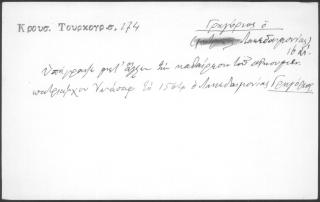 Κρουσ. Τουρκογρ. 174
Γρηγόριος ὁ
Λακεδαιμονίας
16 αἰ.
Ὑπέγραψε μετ' ἄλλων τὴν καθαίρεσιν τοῦ οἰκουμεν.
πατριάρχου Ἰωάσαφ. Τὸ 1564 ὁ Λακεδαιμονίας Γρηγόριος